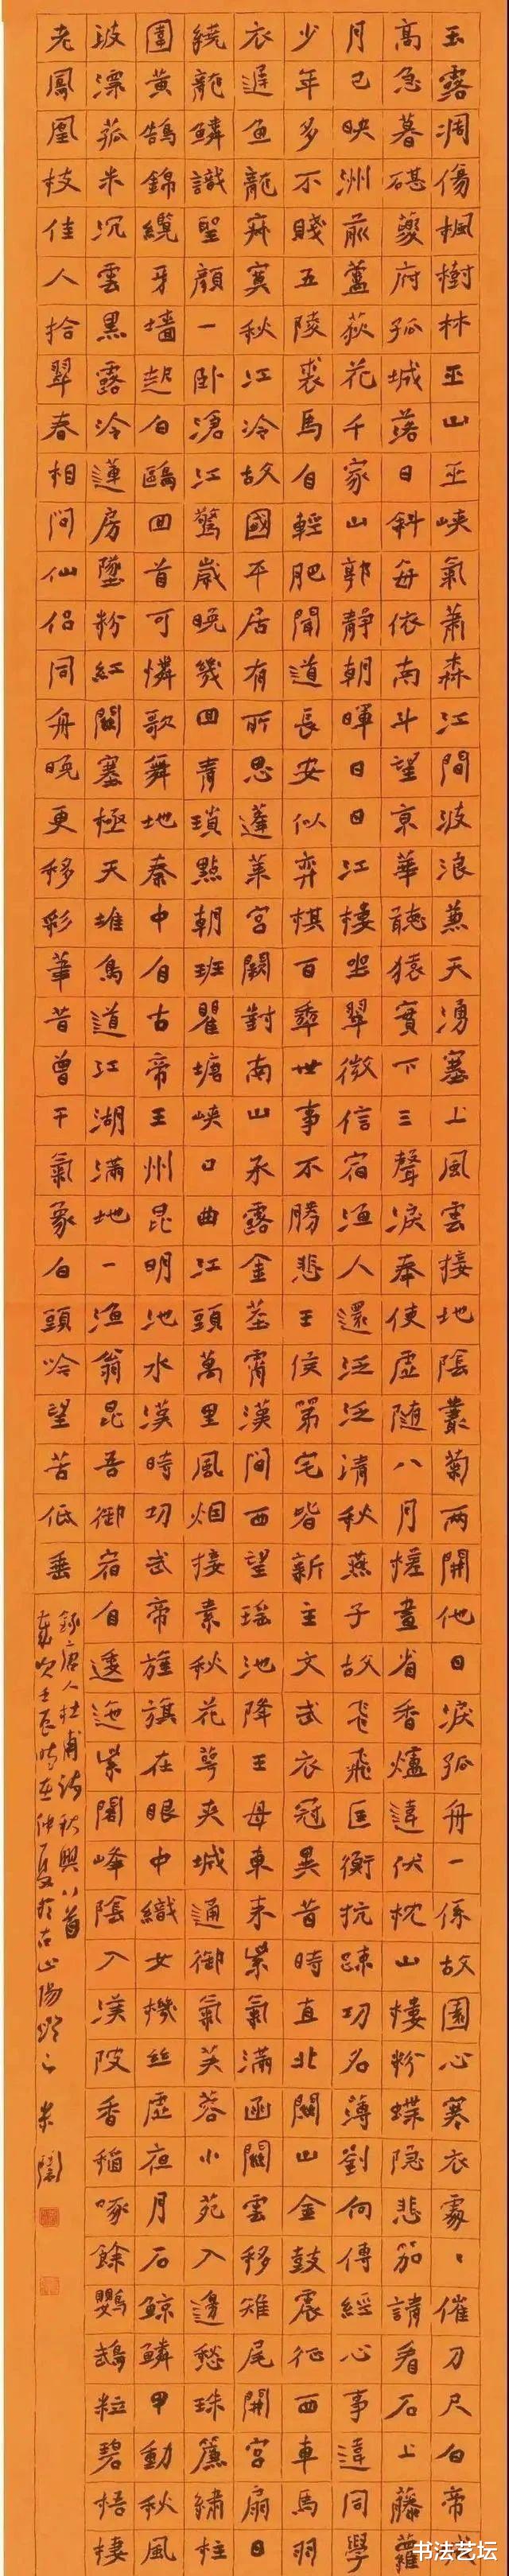 玉露凋傷楓樹林巫山巫峽氣蕭森江間波浪兼天湧塞上風雲接地陰叢菊兩開他日淚孤舟一係故園心寒衣處〻催刀尺白帝
高急暮碪夔府孤城落日斜每依南斗望京華聽猿實下三聲淚奉使虛隨八月槎畫省香爐違伏枕山樓粉蝶隱悲笳請看石上藤蘿
月已映洲前蘆荻花千家山郭靜朝暉日日江樓坐翠微信宿漁人還泛泛清秋燕子故飛飛匡衡抗疎功名薄劉向傳經心事違同學
少年多不賤五陵裘馬自輕肥聞道長安似弈棋百年世事不勝悲王侯第宅皆新主文武衣冠異昔時直北關山金鼓震征西車馬羽
衣遲魚龍寂寞秋江冷故國平居有所思蓬萊宮闕對南山承露金莖霄漢間西望瑤池降王母東來紫氣滿函關雲移雉尾開宮扇日
繞龍鱗識聖顏一臥滄江驚歲晚幾回青瑣點朝班瞿塘峽口曲江頭萬里風烟接素秋花萼夾城通御氣芙蓉小苑入邊愁珠簾繡柱
圍黃鵠錦纜牙墻起白鷗回首可憐歌舞地秦中自古帝王州昆明池水漢時功武帝旌旗在眼中織女機絲虛夜月石鯨鱗甲動秋風
波漂菰米沉雲黑露冷蓮房墜粉紅關塞極天唯鳥道江湖滿地一漁翁昆吾御宿自逶迤紫閣峰陰入渼陂香稻啄餘鸚鵡粒碧梧棲
老鳳凰枝佳人拾翠春相問仙侶同舟晚更移彩筆昔曾干氣象白頭吟望苦低垂
錄唐人杜甫詩秋興八首
歲次壬辰時在仲夏於古山陽
书法艺坛